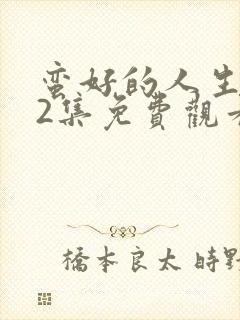 蛮好的人生
2集免費觀看
橋本良太 時野